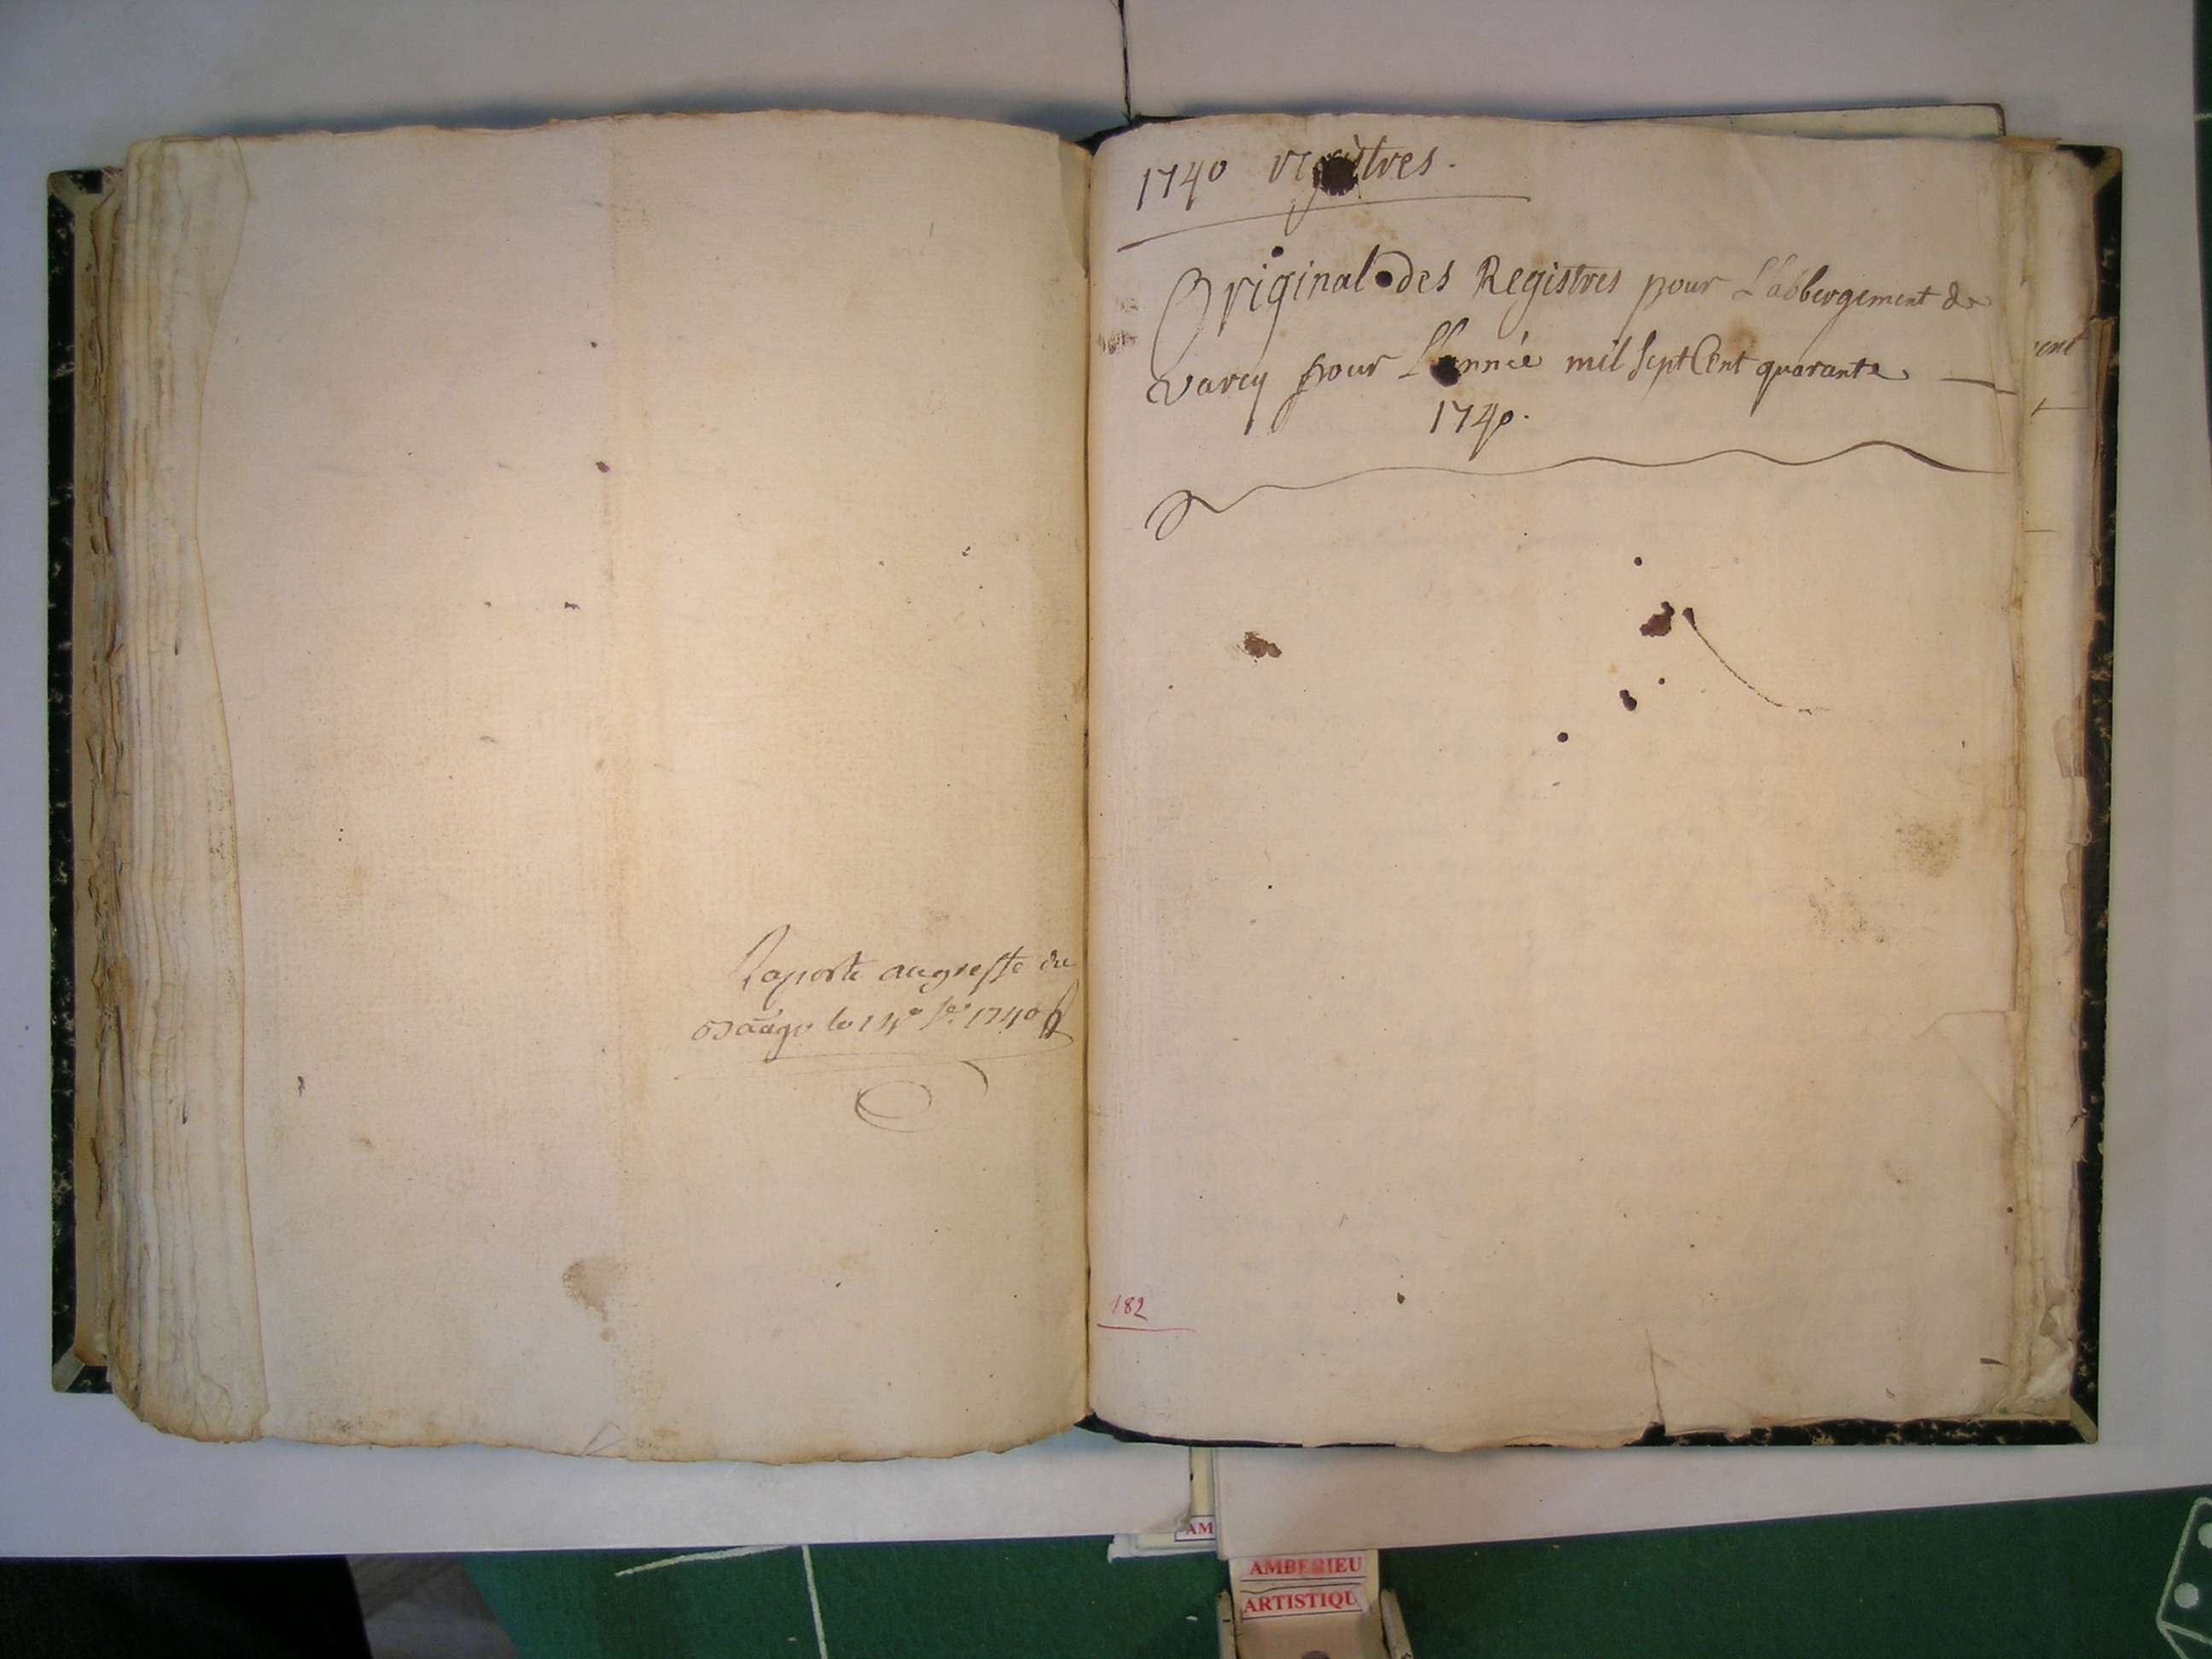 Raporté au greffe du
le 14e 1740
1740 registres.
Original des Registres pour L'abbergement de
varey pour L'année mil Sept Cent quarante
1740.
182
ent
AM
AMBERIEU
ARTISTIQU